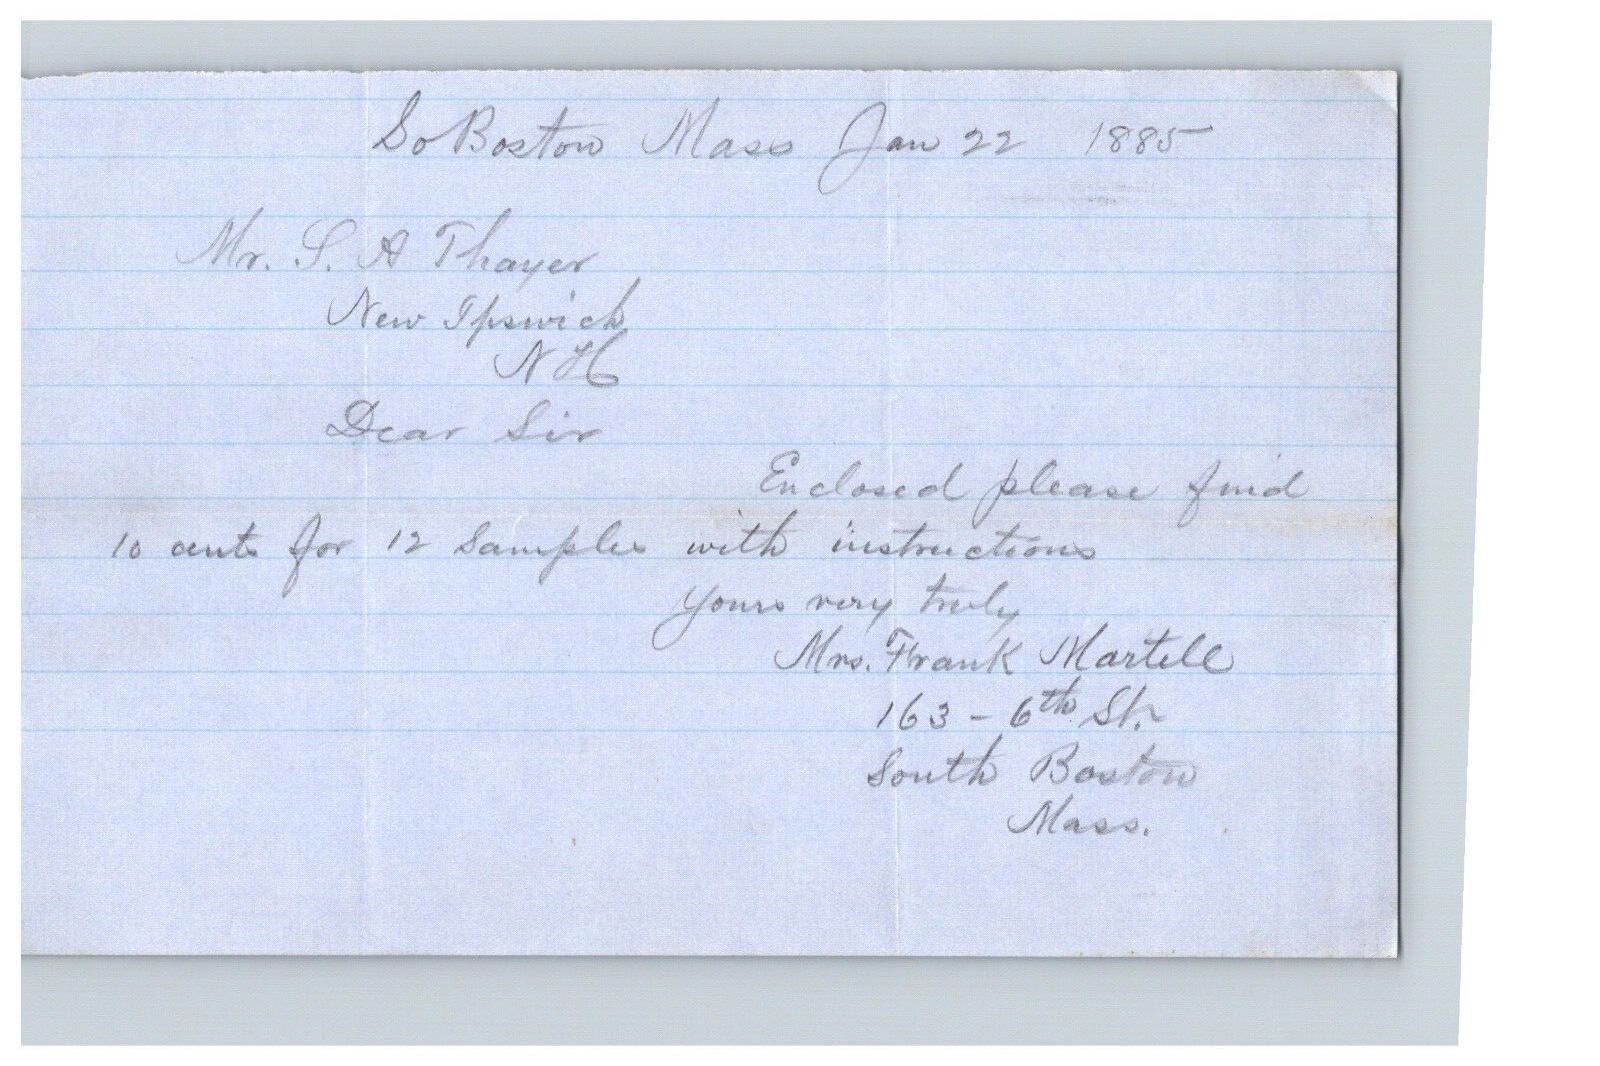 So Boston Mass Jan 22 1885
Mr. S. A Thayer
New Ipswich
N H
Dear Sir
Enclosed please find
10 cents for 12 samples with instructions
Yours very truly
Mrs. Frank Martell
163 - 6th St.
South Boston
Mass.